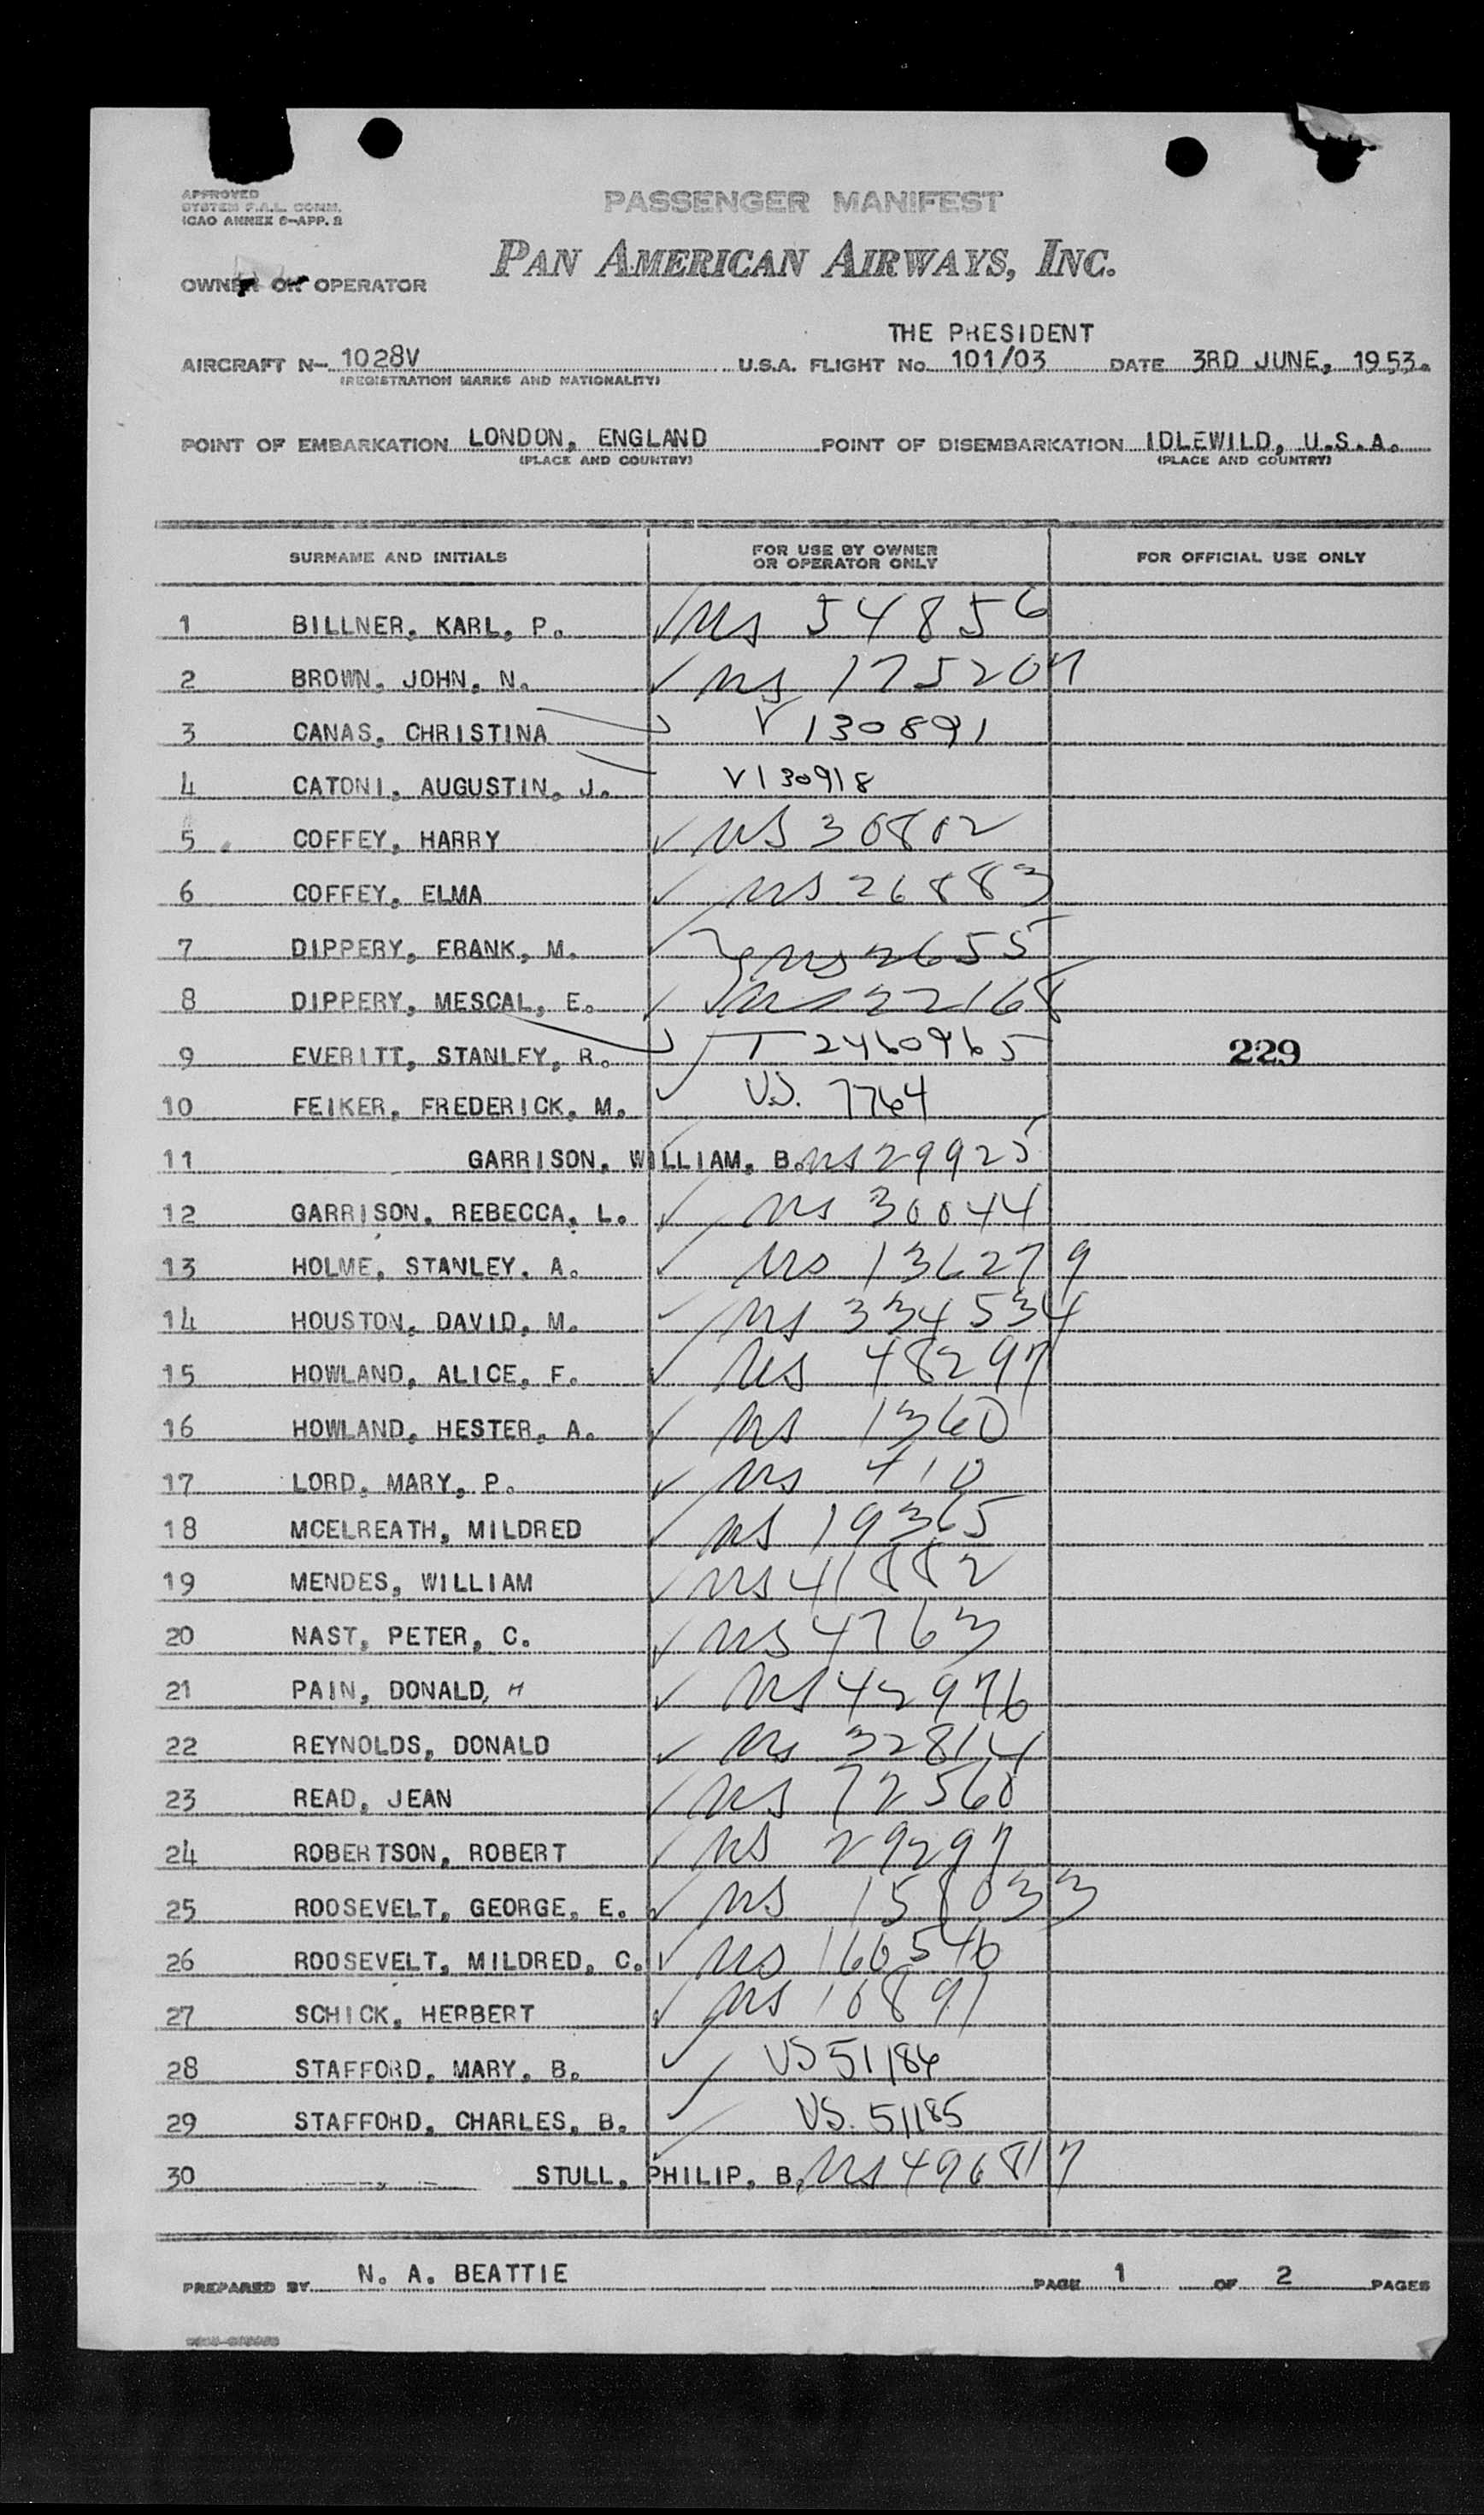 APPROVED
SYSTEM F.A.L. COMM.
ICAO ANNEX 9-APP. 2
PASSENGER MANIFEST
PAN AMERICAN AIRWAYS, INC.
OWNER OR OPERATOR
THE PRESIDENT
AIRCRAFT N- 1028V U.S.A. FLIGHT No. 101/03 DATE 3RD JUNE, 1953.
(REGISTRATION MARKS AND NATIONALITY)
POINT OF EMBARKATION LONDON, ENGLAND POINT OF DISEMBARKATION IDLEWILD, U.S.A.
(PLACE AND COUNTRY) (PLACE AND COUNTRY)
SURNAME AND INITIALS FOR USE BY OWNER OR OPERATOR ONLY FOR OFFICIAL USE ONLY
1 BILLNER, KARL, P. ✓ US 54856
2 BROWN, JOHN, N. ✓ US 175207
3 CANAS, CHRISTINA V 130891
4 CATONI, AUGUSTIN, J. V130918
5 COFFEY, HARRY ✓ US 30802
6 COFFEY, ELMA ✓ US 26883
7 DIPPERY, FRANK, M. ✓ US 2655
8 DIPPERY, MESCAL, E. ✓ US 22168
9 EVERITT, STANLEY, R. T 2460965 229
10 FEIKER, FREDERICK, M. ✓ U.S. 7764
11 GARRISON, WILLIAM, B. US 29925
12 GARRISON, REBECCA, L. ✓ US 30044
13 HOLME, STANLEY, A. ✓ US 136279
14 HOUSTON, DAVID, M. ✓ US 334534
15 HOWLAND, ALICE, F. ✓ US 48297
16 HOWLAND, HESTER, A. ✓ US 1360
17 LORD, MARY, P. ✓ US 410
18 MCELREATH, MILDRED ✓ US 19365
19 MENDES, WILLIAM ✓ US 41882
20 NAST, PETER, C. ✓ US 4763
21 PAIN, DONALD, H ✓ US 42976
22 REYNOLDS, DONALD ✓ US 32814
23 READ, JEAN ✓ US 72560
24 ROBERTSON, ROBERT ✓ US 29297
25 ROOSEVELT, GEORGE, E. ✓ US 158033
26 ROOSEVELT, MILDRED, C. ✓ US 160546
27 SCHICK, HERBERT ✓ US 10891
28 STAFFORD, MARY, B. ✓ US 51186
29 STAFFORD, CHARLES, B. ✓ US. 51185
30 STULL, PHILIP, B. US 496817
PREPARED BY N. A. BEATTIE PAGE 1 OF 2 PAGES